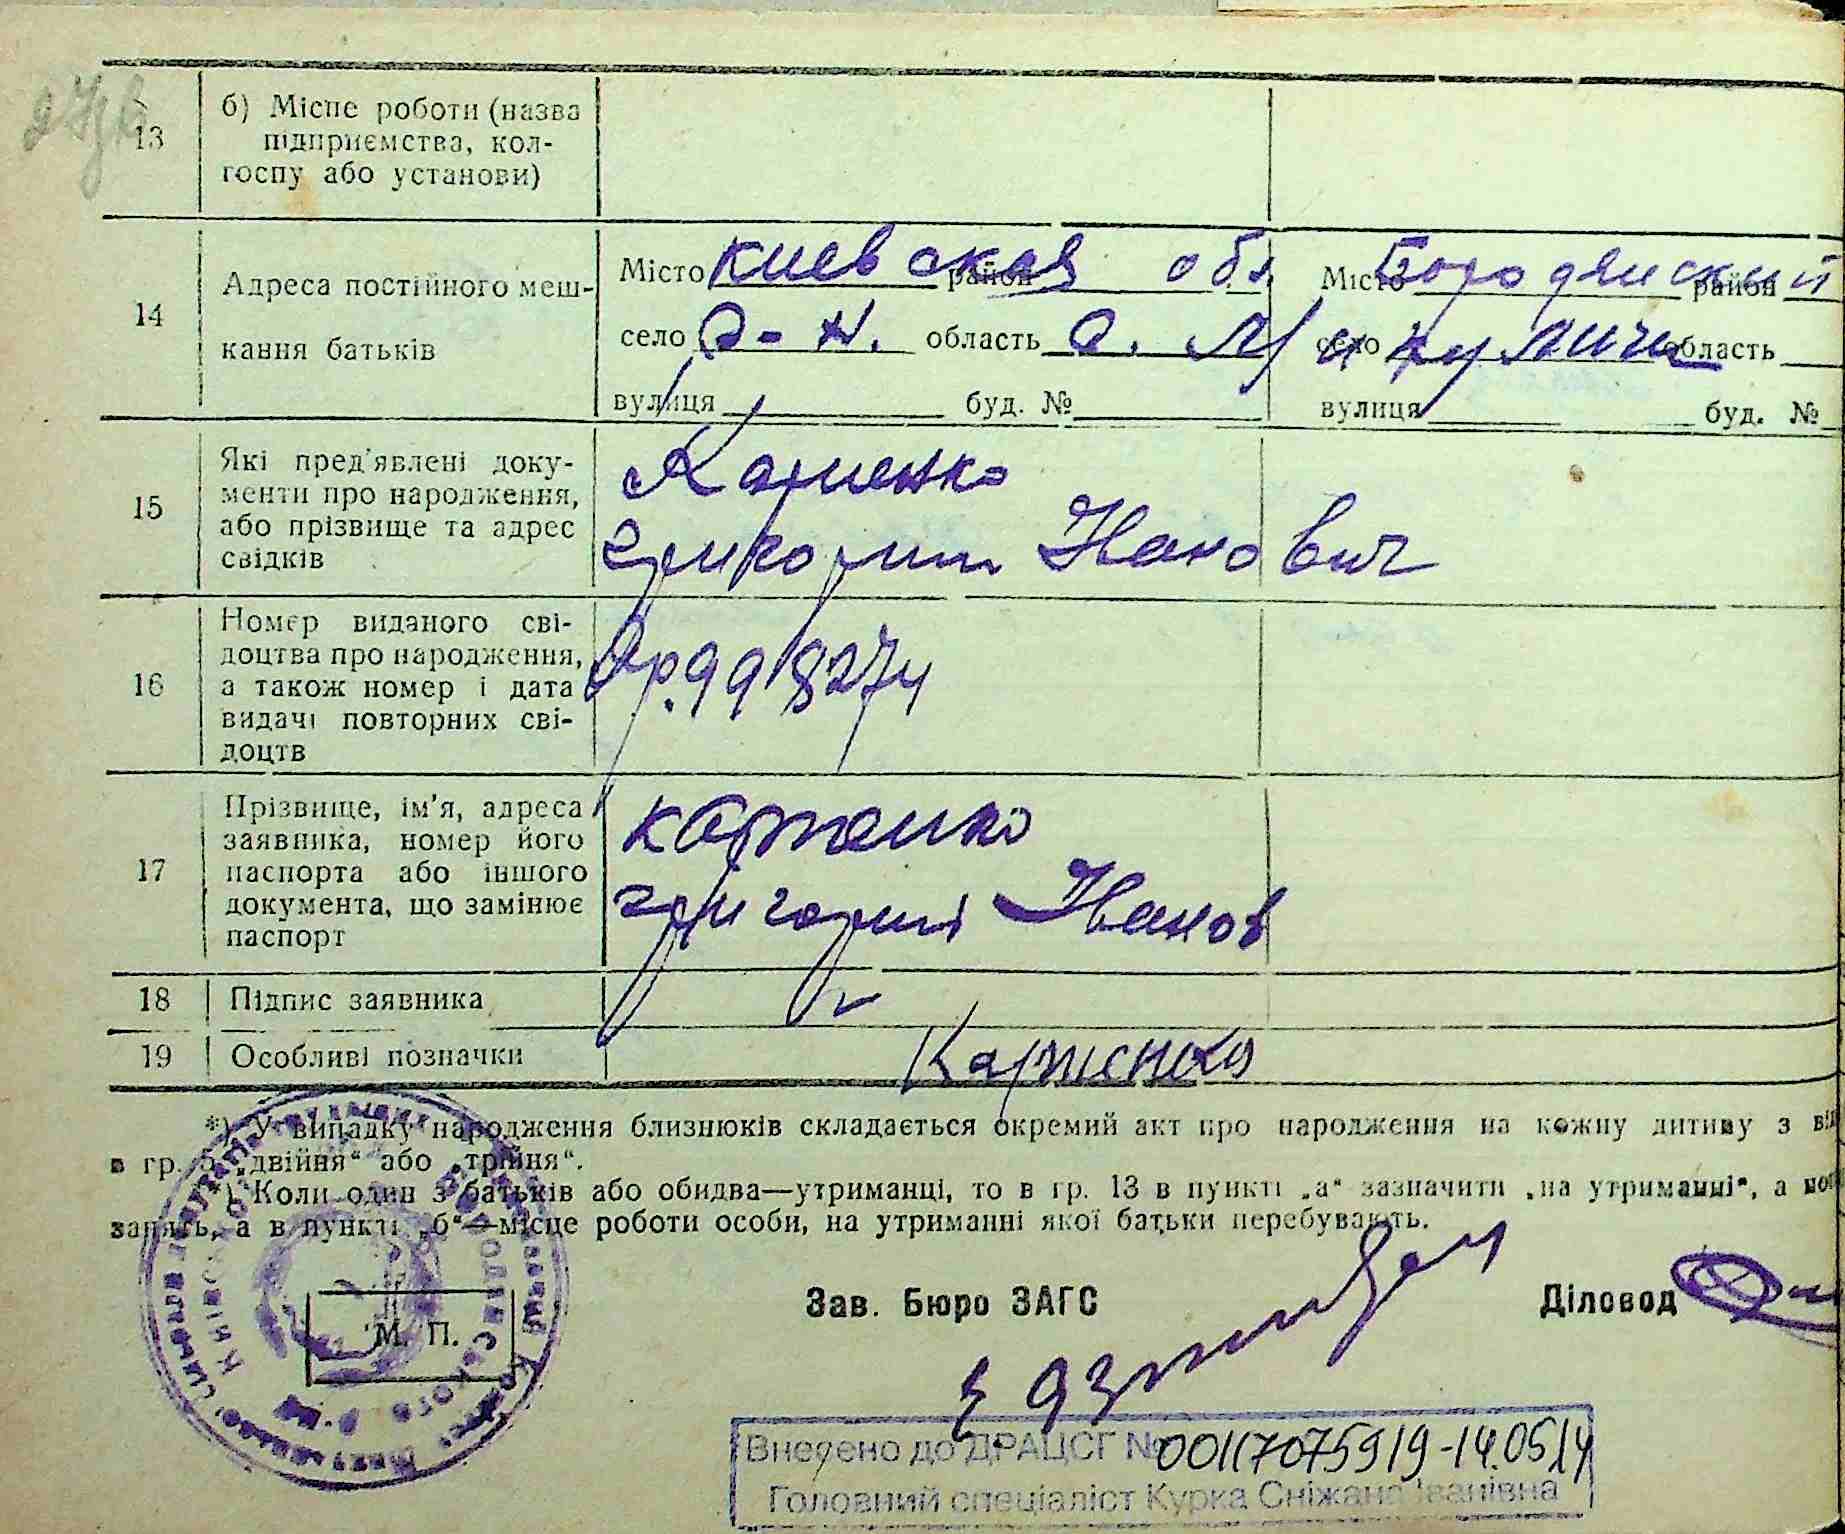 13
б) Місце роботи (назва
підприємства, кол-
госпу або установи)
14
Адреса постійного меш-
кання батьків
Місто Киевская район обл. Місто Бородянский район
село р-н. область с. Микуличи село область
вулиця буд. № вулиця буд. №
15
Які пред'явлені доку-
менти про народження,
або прізвище та адрес
свідків
Карпенко
Григорий Иванович
16
Номер виданого сві-
доцтва про народження,
а також номер і дата
видачі повторних сві-
доцтв
998274
17
Прізвище, ім'я, адреса
заявника, номер його
паспорта або іншого
документа, що замінює
паспорт
Карпенко
Григорий Иванов
18 Підпис заявника
19 Особливі позначки
Карпенко
*) У випадку народження близнюків складається окремий акт про народження на кожну дитину з
в гр. 5 „двійня“ або „трійня“.
*) Коли один з батьків або обидва—утриманці, то в гр. 13 в пункті „а“ зазначити „на утриманні“, а
занять, а в пункті „б“—місце роботи особи, на утриманні якої батьки перебувають.
Зав. Бюро ЗАГС
Діловод
М. П.
Внесено до ДРАЦСГ № 00117075919-14.05.14
Головний спеціаліст Курка Сніжана Іванівна